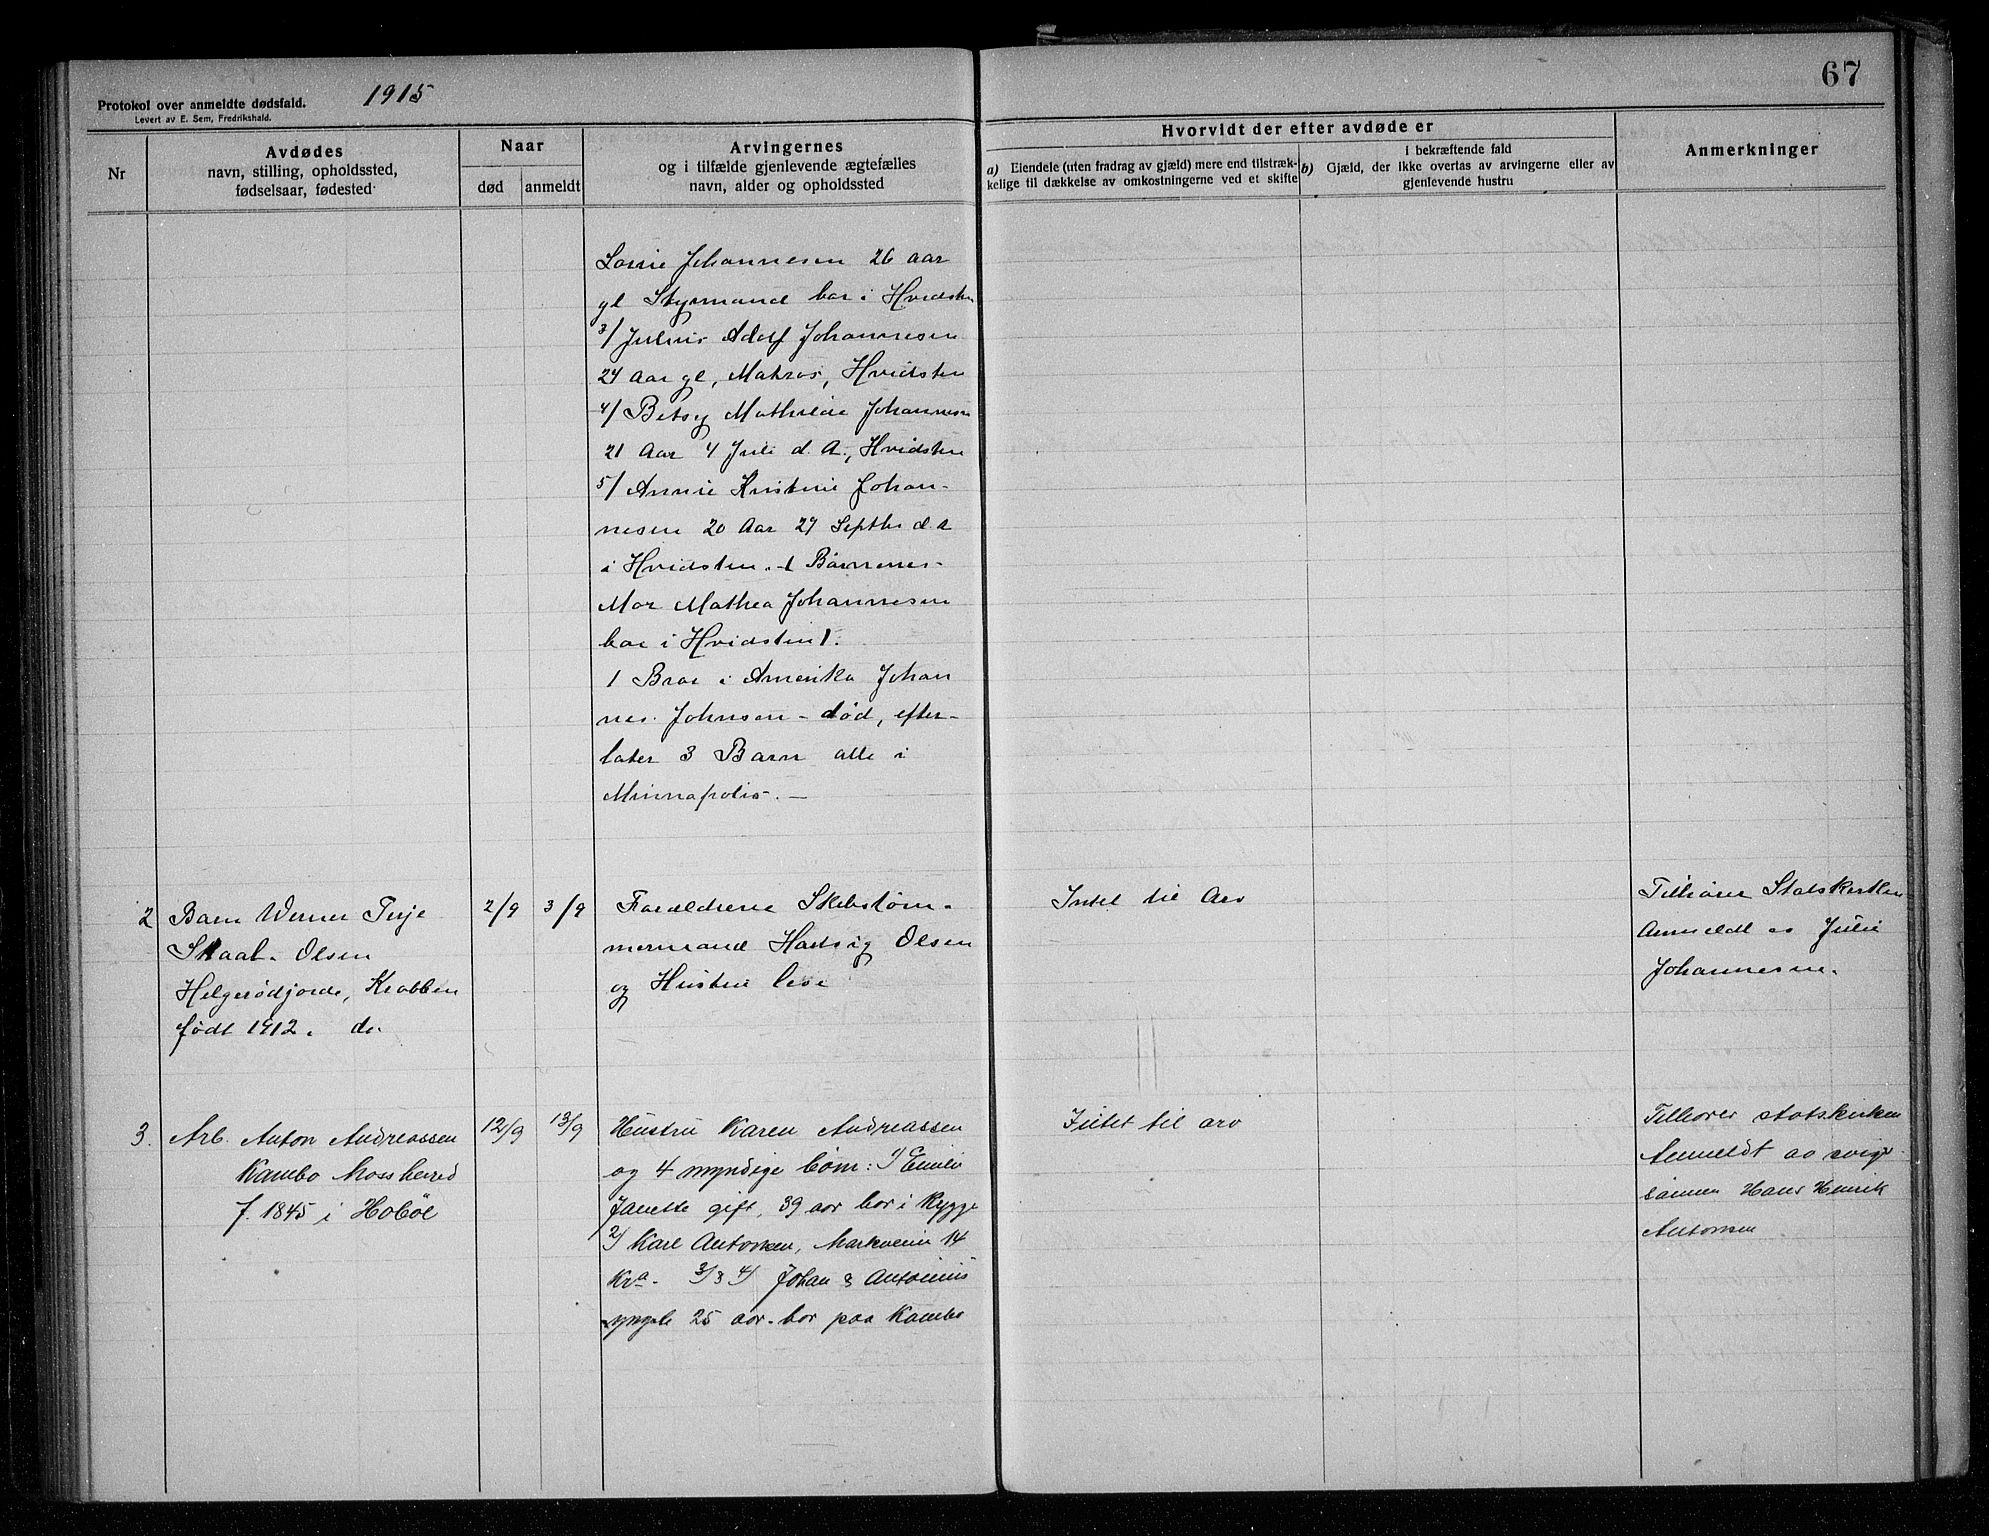 Protokol over anmeldte dødsfald. 1915
Levert av E. Sem, Fredrikshald.
67
Nr
Avdødes
navn, stilling, opholdssted,
fødselsaar, fødested
Naar
død
anmeldt
Arvingernes
og i tilfælde gjenlevende ægtefælles
navn, alder og opholdssted
Hvorvidt der efter avdøde er
a) Eiendele (uten fradrag av gjæld) mere end tilstræk-
kelige til dækkelse av omkostningerne ved et skifte
I bekræftende fald
b) Gjæld, der ikke overtas av arvingerne eller av
gjenlevende hustru
Anmerkninger
Johannesen 26 aar
gl Styrmand bor i Hvidsten
3/ Julius Adolf Johannesen
24 Aar gl, Matros, Hvidsten
4/ Betsy Mathilde Johannesen
21 Aar 4 Juli d. A., Hvidsten
5/ Annie Kristine Johan-
nesen 20 Aar 27 Septbr d. a
i Hvidsten. Børnenes
Mor Mathea Johannesen
bor i Hvidsten.
1 Bror i Amerika Johan
nes Johnsen - død, efter-
later 3 Barn alle i
Minnapolis. —
2
Barn Werner Terje
Skaal-Olsen
Helgerødjorde, Krabben
født 1912. do
2/9
3/9
Forældrene Skibstøm-
mermand Hartvig Olsen
og Hustru leve
Intet til Arv
Tilhører Statskirken
Anmeldt av Julie
Johannesen.
3.
Arb. Anton Andreassen
Kambo Moss herred
f. 1845 i Hobøl
12/9
13/9
Hustru Karen Andreassen
og 4 myndige børn: 1) Emilie
Janette gift, 39 aar bor i Rygge
2) Karl Antonsen, Markveien 14
Kra. 3/ & 4/ Johan & Antonius
yngste 25 aar. bor paa Kambo
Intet til arv
Tilhører statskirken
Anmeldt av svige
sønnen Hans Henrik
Antonsen